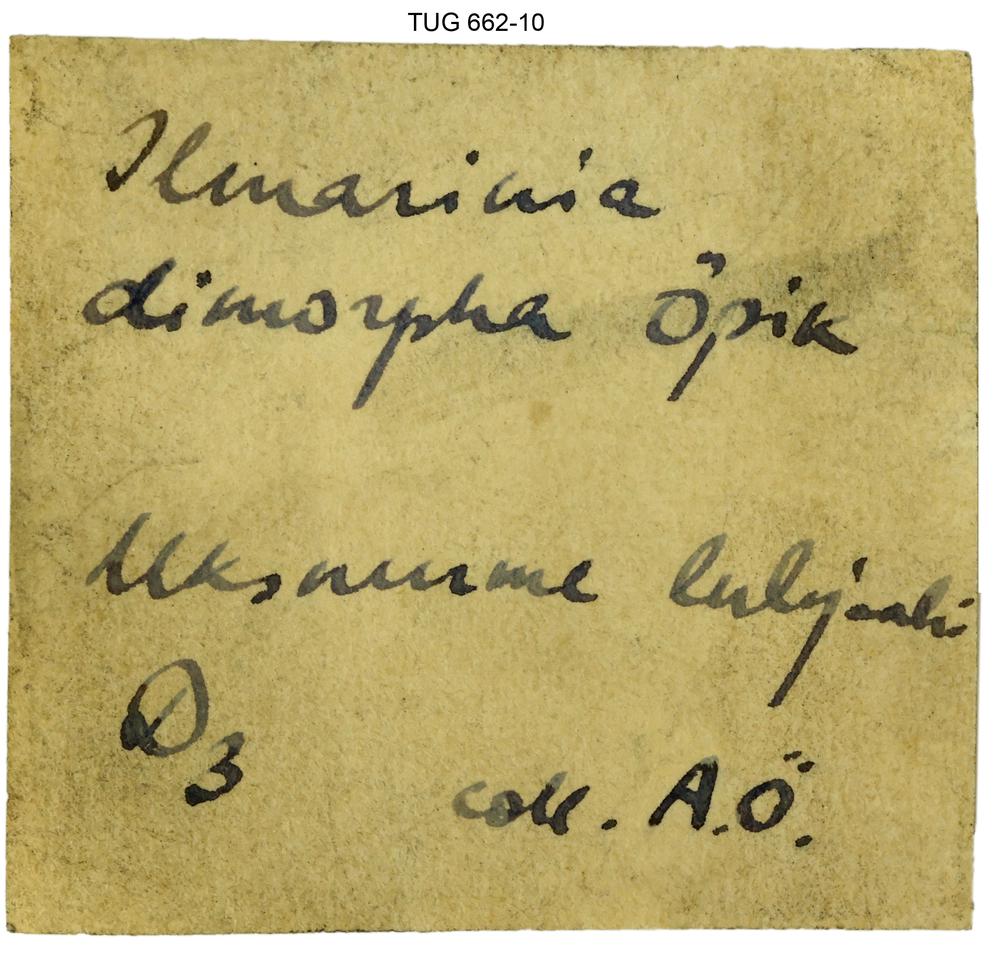 TUG 662-10
Ilmarinia
dimorpha Öpik
Uksnurme lubjaahi
D3
coll. A.Ö.